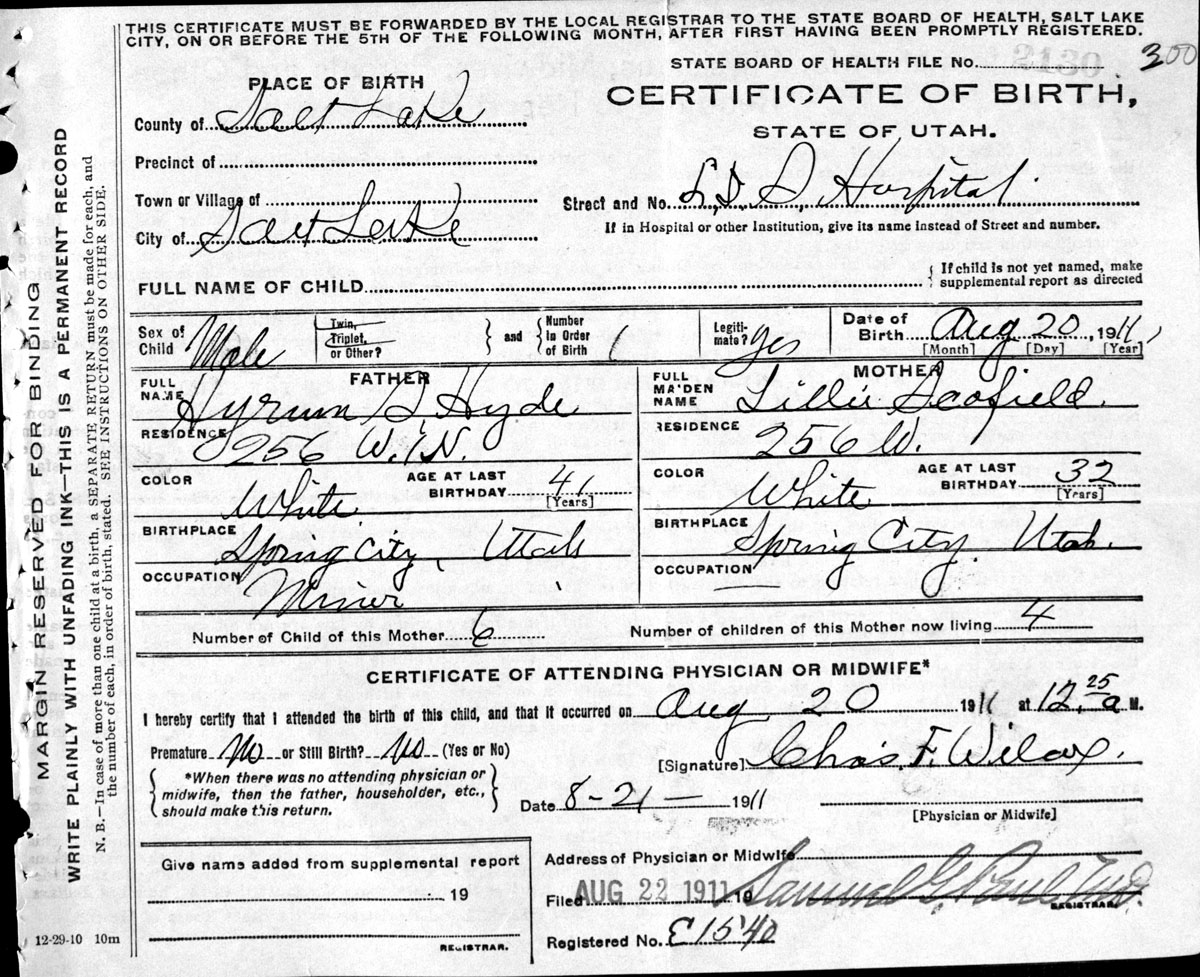 THIS CERTIFICATE MUST BE FORWARDED BY THE LOCAL REGISTRAR TO THE STATE BOARD OF HEALTH, SALT LAKE
CITY, ON OR BEFORE THE 5TH OF THE FOLLOWING MONTH, AFTER FIRST HAVING BEEN PROMPTLY REGISTERED.
STATE BOARD OF HEALTH FILE No. 2130 300
PLACE OF BIRTH
CERTIFICATE OF BIRTH,
STATE OF UTAH.
County of Salt Lake
Precinct of
Town or Village of
City of Salt Lake
Street and No. L.D.S. Hospital.
If in Hospital or other Institution, give its name instead of Street and number.
FULL NAME OF CHILD
{ If child is not yet named, make
supplemental report as directed
Sex of
Child Male
Twin,
Triplet,
or Other?
} and {
Number
in Order
of Birth 1
Legiti-
mate? yes
Date of
Birth Aug 20, 1911,
[Month] [Day] [Year]
FATHER
FULL
NAME Hyrum S. Hyde
RESIDENCE 256 W. 1 N.
COLOR White
AGE AT LAST
BIRTHDAY 41
[Years]
BIRTHPLACE Spring City, Utah
OCCUPATION Miner
MOTHER
FULL
MAIDEN
NAME Lillie Scofield.
RESIDENCE 256 W.
COLOR White
AGE AT LAST
BIRTHDAY 32
[Years]
BIRTHPLACE Spring City. Utah.
OCCUPATION —
Number of Child of this Mother 6
Number of children of this Mother now living 4
CERTIFICATE OF ATTENDING PHYSICIAN OR MIDWIFE*
I hereby certify that I attended the birth of this child, and that it occurred on Aug 20 1911 at 12.25 a M.
Premature No or Still Birth? No (Yes or No)
[Signature] Chas. F. Wilcox.
{ *When there was no attending physician or
midwife, then the father, householder, etc.,
should make this return. }
Date 8-21- 1911
[Physician or Midwife]
Give name added from supplemental report
19
REGISTRAR.
Address of Physician or Midwife
Filed AUG 22 1911 19 Samuel G. Paul M.D.
REGISTRAR.
Registered No. E1540
12-29-10 10m
MARGIN RESERVED FOR BINDING
WRITE PLAINLY WITH UNFADING INK—THIS IS A PERMANENT RECORD
N. B.—In case of more than one child at a birth, a SEPARATE RETURN must be made for each, and
the number of each, in order of birth, stated. SEE INSTRUCTIONS ON OTHER SIDE.